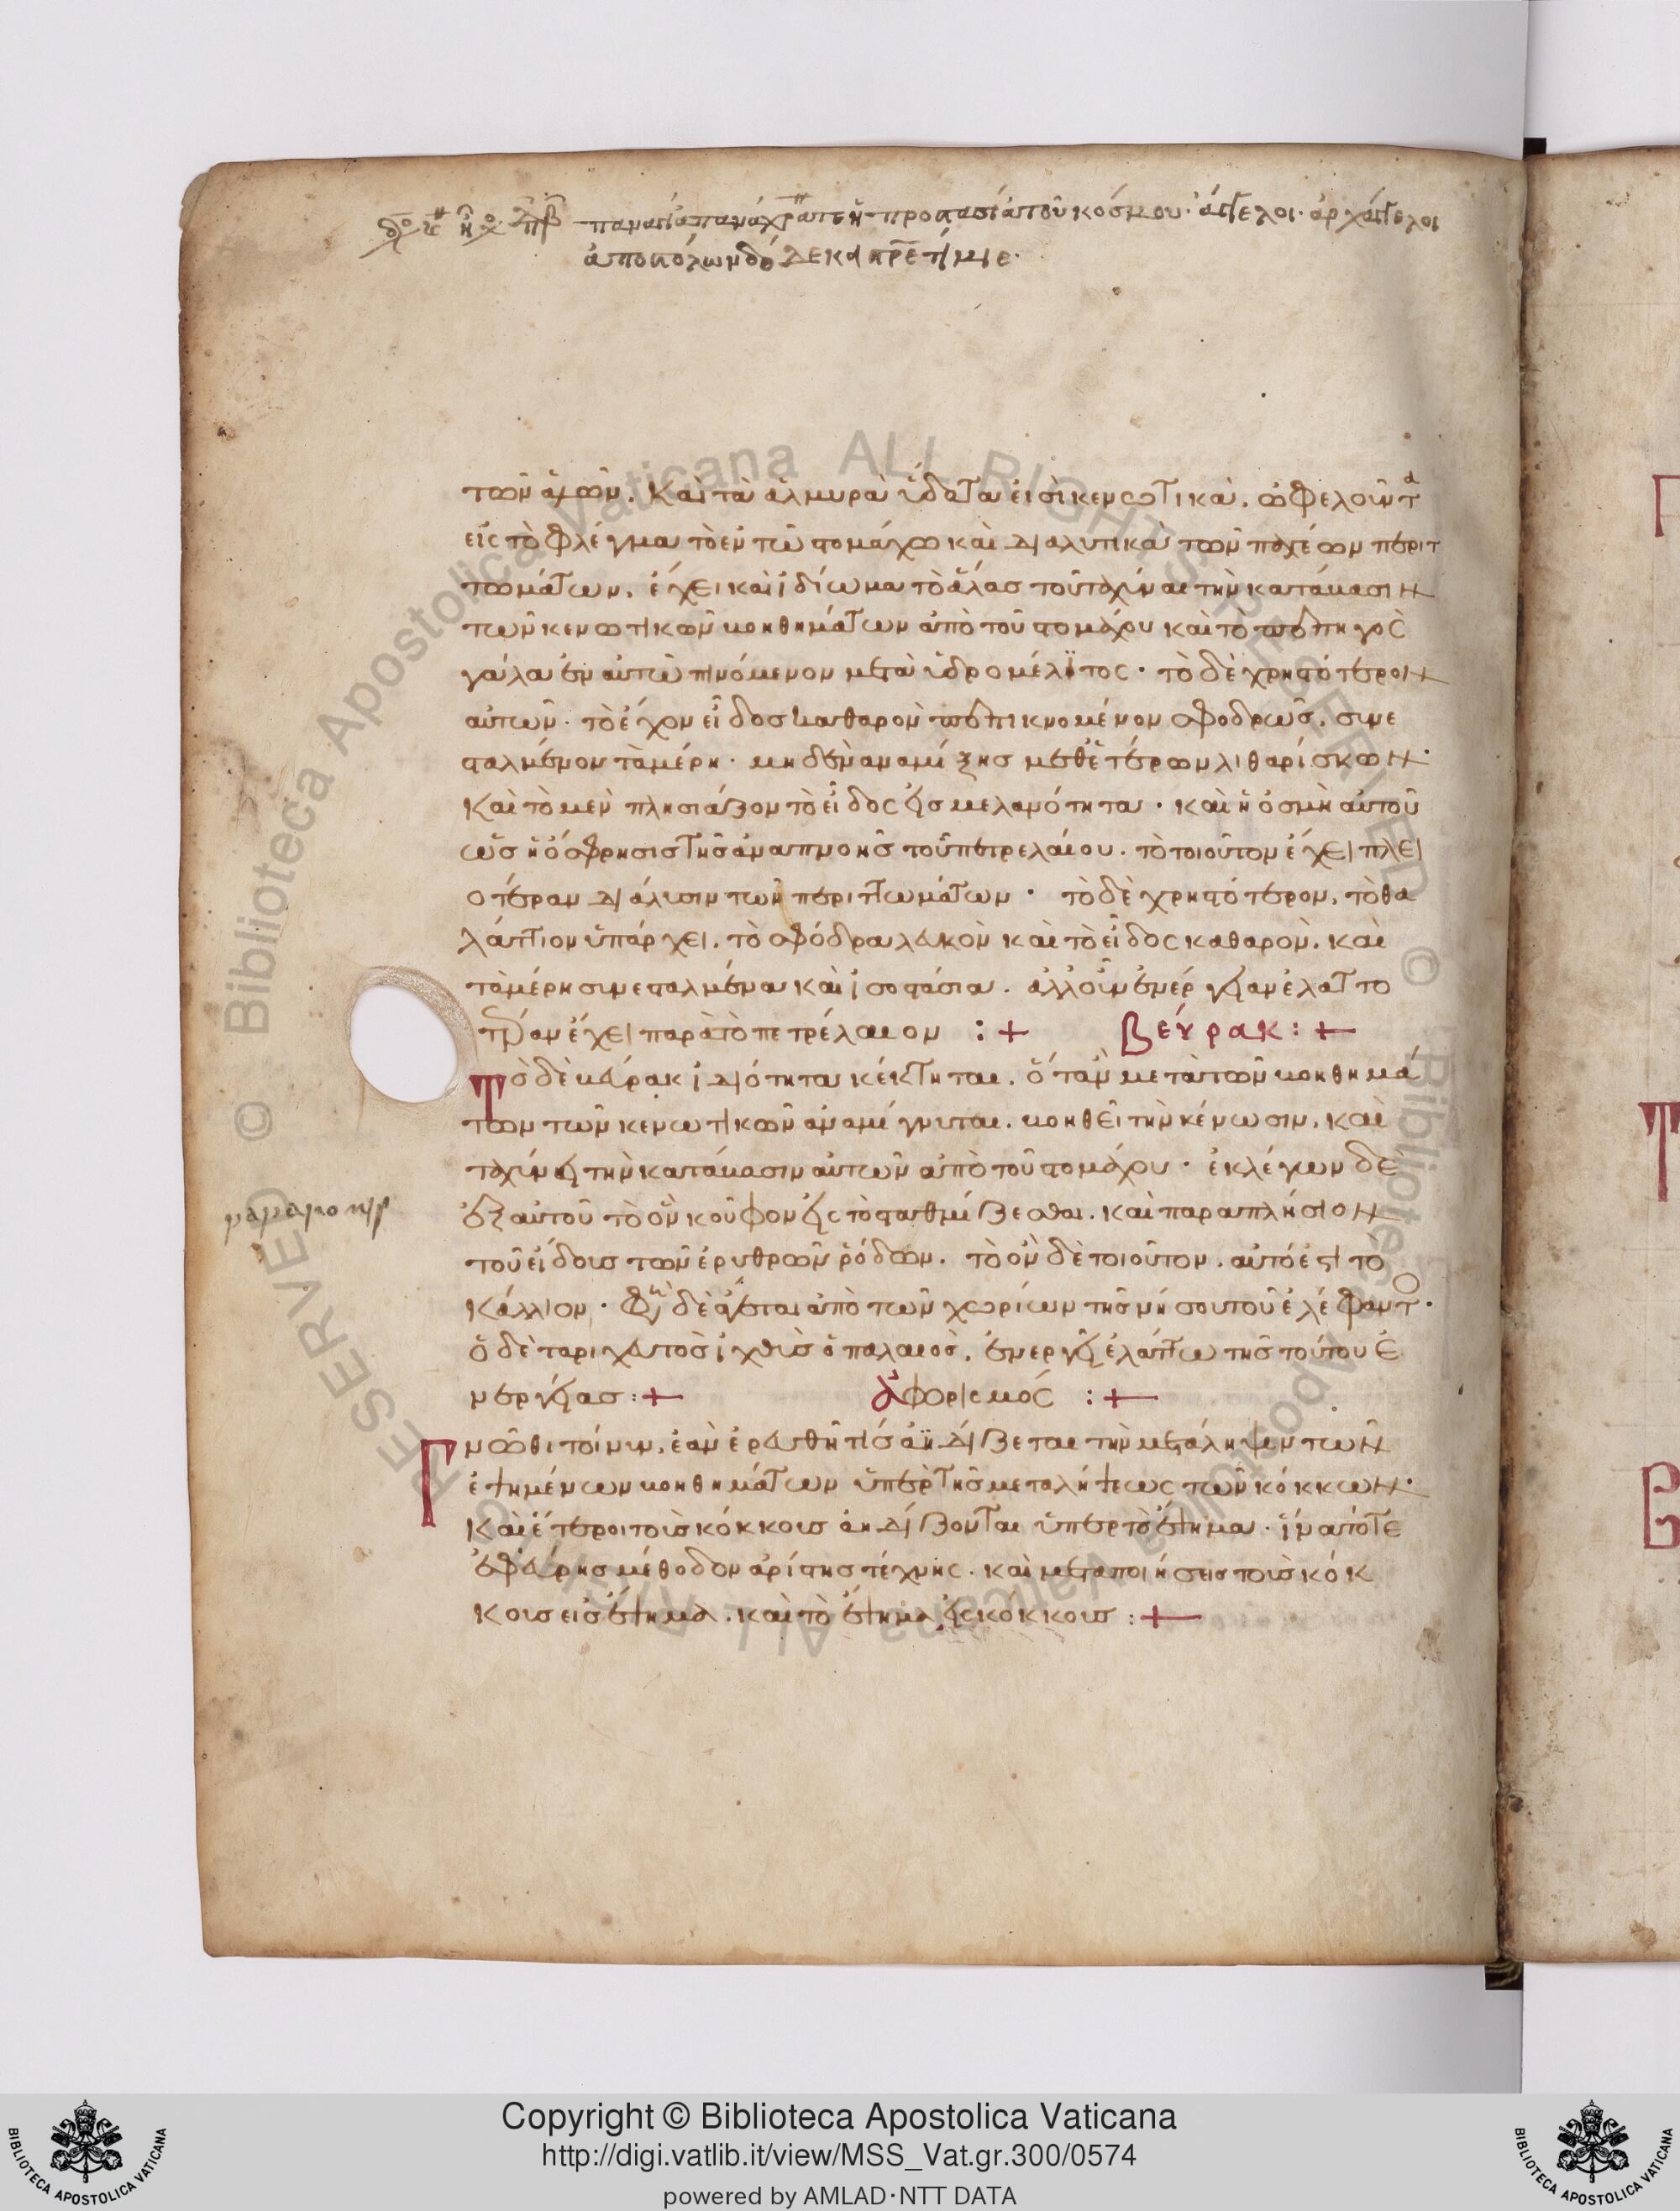 παναγία πανάχραντε ἡ προστασία τοῦ κόσμου· ἄγγελοι· ἀρχάγγελοι
ἀποστόλων δόδεκα
τῶν ἁλῶν. Καὶ τὰ ἁλμυρὰ ὕδατα εἰσὶ κενωτικὰ. ὠφελοῦντα
εἰς τὸ φλέγμα τὸ ἐν τῶ στομάχω καὶ διαλυτικὰ τῶν παχέων περιτ
τωμάτων. ἔχει καὶ ἰδίωμα τὸ ἅλας τοῦ ταχύναι τὴν κατάβασιν
τῶν κενωτικῶν βοηθημάτων ἀπὸ τοῦ στομάχου καὶ τὸ
γάλα ἐν αὐτῶ πινόμενον μετὰ ὑδρομέλιτος· τὸ δὲ χρηστότερον
αὐτῶν. τὸ ἔχον εἶδος καθαρὸν πεπυκνομένον σφοδρῶς. συνε
σταλμένον τὰ μέρη· μηδὲν ἀναμίξης μεθ' ἑτέρων λιθαρίσκων·
Καὶ τὸ μὲν πλησιάζον τὸ εἶδος εἰς μελανότητα· καὶ ἡ ὀσμὴ αὐτοῦ
ὡς ἡ ὄσφρησις τῆς ἀναπνοῆς τοῦ πετρελαίου. τὸ τοιοῦτον ἔχει πλει
οτέραν διάλυσιν τῶν περιττωμάτων· τὸ δὲ χρηστότερον, τὸ θα
λάττιον ὑπάρχει. τὸ σφόδρα λευκὸν καὶ τὸ εἶδος καθαρὸν. καὶ
τὰ μέρη συνεσταλμένα καὶ ἰσοστάσια. ἀλλ' οὖν ἐνέργειαν ἐλαττο
τέραν ἔχει παρὰ τὸ πετρέλαιον :+ Βεύρακ :+
Τὸ δὲ βεύρακ ἰδιότητα κέκτηται. ὅταν μετὰ τῶν βοηθημά
των τῶν κενωτικῶν ἀναμίγνυται. βοηθεῖ τὴν κένωσιν, καὶ
ταχύνει τὴν κατάβασιν αὐτῶν ἀπὸ τοῦ στομάχου· ἐκλέγων δὲ
ἐξ αὐτοῦ τὸ ὂν κοῦφον εἰς τὸ σταθμίζεσθαι. καὶ παραπλήσιον
τοῦ εἴδους τῶν ἐρυθρῶν ῥόδων. τὸ ὂν δὲ τοιοῦτον. αὐτό ἐστι τὸ
κάλλιον· δὲ ἀπὸ τῶν χωρίων τῆς νήσου τοῦ ἐλέφαντο·
ὁ δὲ ταριχευτὸς ἰχθὺς ὁ παλαιὸς. ἐνεργεῖ ἐλάττω τῆς τούτου ἐ
νεργείας :+ ἀφορισμός :+
Γνῶθι τοίνυν, ἐὰν ἐρευθῆ τίς ἀηδίζεται τὴν μετάληψιν τῶν
ἑψημένων βοηθημάτων ὑπὲρ τῆς μεταλήψεως τῶν κόκκων·
Καὶ ἕτεροι τοὺς κόκκους ἀηδίζονται ὑπὲρ τὸ ἕψημα· ἵνα πότε
ἐφεύρης μέθοδον ἀρίστης τέχνης. καὶ μεταποιήσεις τοὺς κόκ
κους εἰς ἕψημα. καὶ τὸ ἕψημα εἰς κόκκους :+
Copyright © Biblioteca Apostolica Vaticana
http://digi.vatlib.it/view/MSS_Vat.gr.300/0574
powered by AMLAD·NTT DATA
BIBLIOTECA APOSTOLICA VATICANA
BIBLIOTECA APOSTOLICA VATICANA